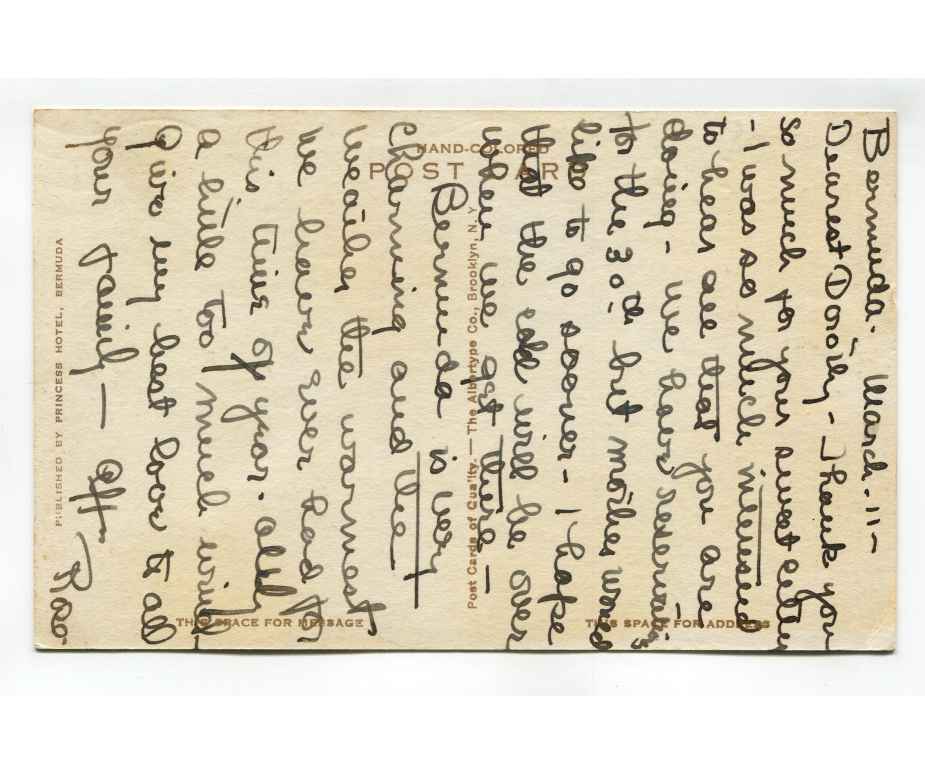 HAND-COLORED
POST CARD
Bermuda. March. 11 -
Dearest Dorothy - Thank you
so much for your sweet letter
- I was so much interested
to hear all that you are
doing - we have reservations
for the 30th. but mother would
like to go sooner - I hope
that the cold will be over
when we get there -
Bermuda is very
charming and the
weather the warmest
we have ever had for
this time of year.
a little too much wind
Give my best love to all
your family - Aff
Post Cards of Quality. — The Albertype Co., Brooklyn, N. Y.
PUBLISHED BY PRINCESS HOTEL, BERMUDA
THIS SPACE FOR MESSAGE
THIS SPACE FOR ADDRESS